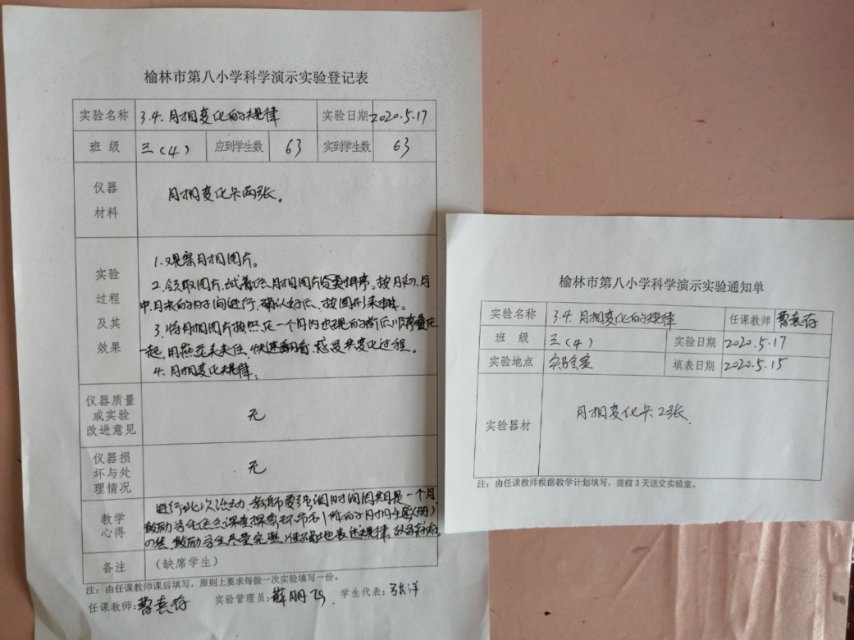 榆林市第八小学科学演示实验登记表
实验名称 3.4.月相变化的规律 实验日期 2020.5.17
班 级 三(4) 应到学生数 63 实到学生数 63
仪器
材料
月相变化卡两张。
实验
过程
及其
效果
1.观察月相图片。
2.领取图片,试着给月相图片分类排序。按月初、月
中、月末的时间进行,确认好后、按图形来排。
3.将月相图片按照在一个月内出现的
一起,用 快速翻看,感受其变化过程。
4.月相变化规律。
仪器质量
或实验
改进意见
无
仪器损
坏与处
理情况
无
教学
心得
进行此次活动,教师要强调时间周期是一个月
鼓励学生
鼓励学生尽量完整、准确地表述规律,
备注 (缺席学生)
注:由任课教师课后填写,原则上要求每做一次实验填写一份。
任课教师: 实验管理员: 学生代表:张洋
榆林市第八小学科学演示实验通知单
实验名称 3.4.月相变化的规律 任课教师
班 级 三(4) 实验日期 2020.5.17
实验地点 实验室 填表日期 2020.5.15
实验器材 月相变化卡2张
注:由任课教师根据教学计划填写,提前3天送交实验室。